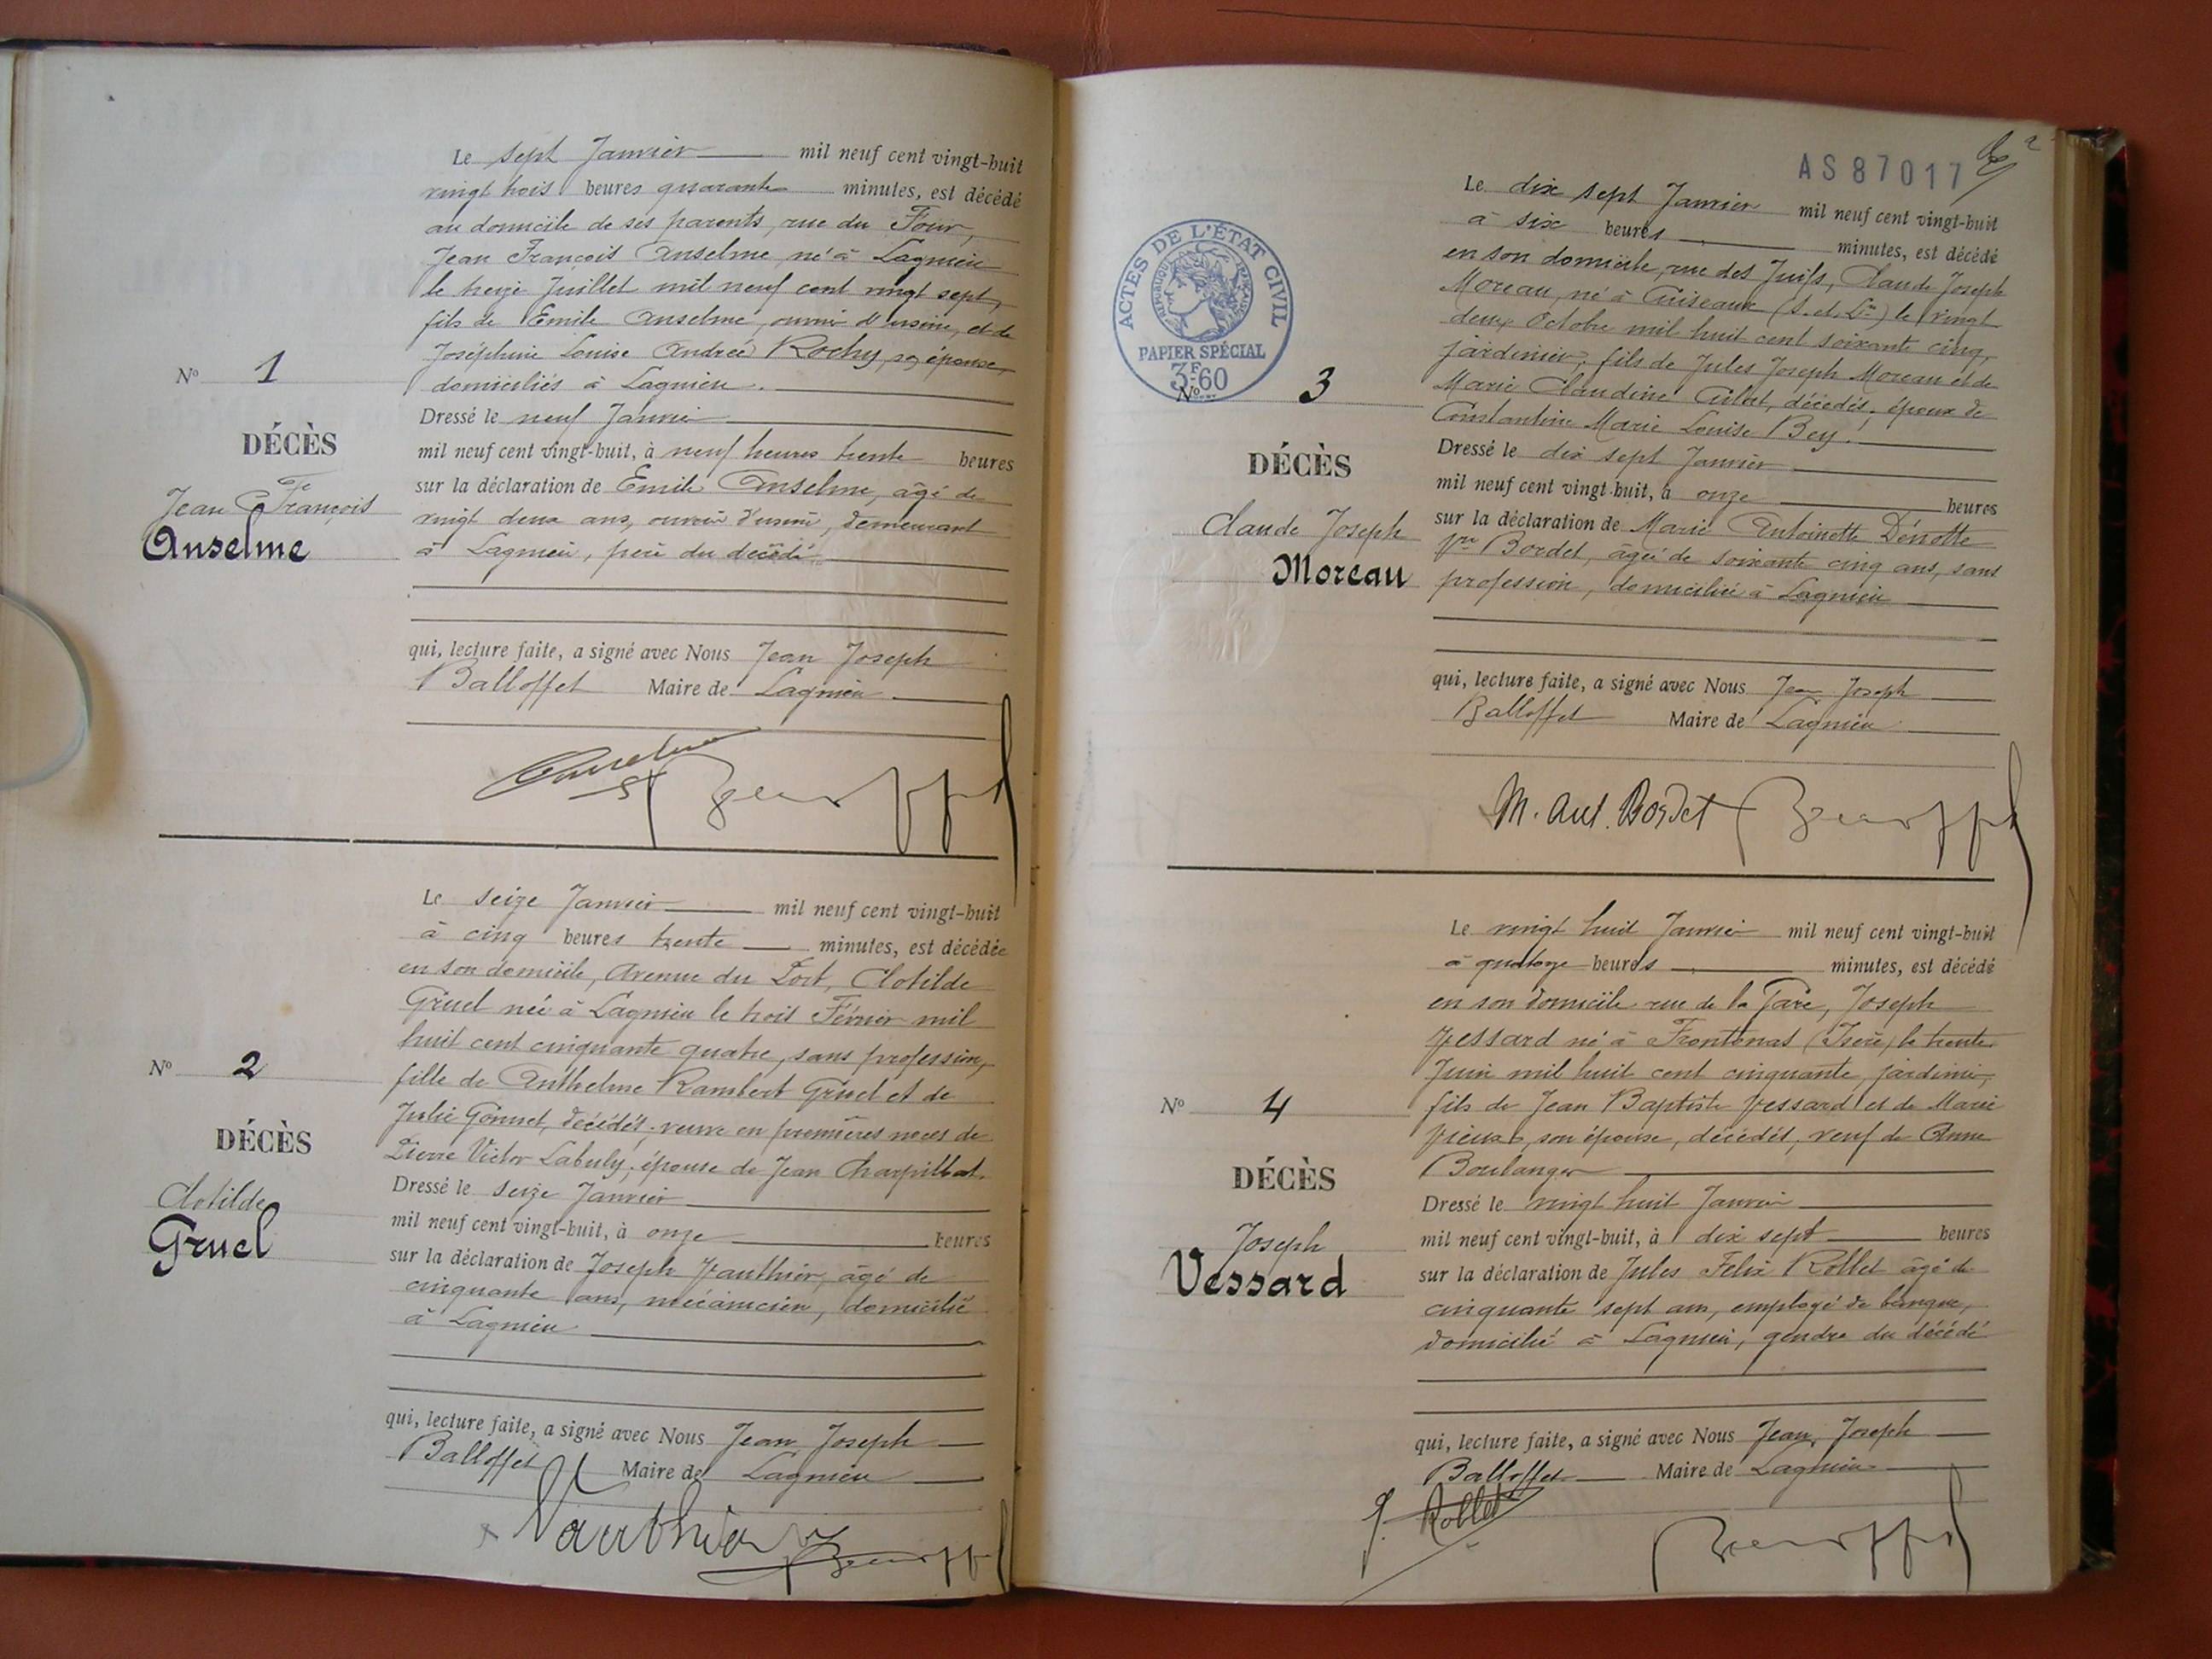 Le sept Janvier mil neuf cent vingt-huit
vingt trois heures quarante minutes, est décédé
au domicile de ses parents, rue du Four,
Jean François Anselme, né à Lagnieu
le treize Juillet mil neuf cent vingt sept,
fils de Emile Anselme, ouvrier d'usine, et de
Joséphine Louise Andrée Rochy, son épouse,
domiciliés à Lagnieu.
Nº 1
DÉCÈS
Jean François
Anselme
Dressé le neuf Janvier
mil neuf cent vingt-huit, à neuf heures trente heures
sur la déclaration de Emile Anselme, âgé de
vingt deux ans, ouvrier d'usine, demeurant
à Lagnieu, père du décédé
qui, lecture faite, a signé avec Nous Jean Joseph
Balloffet Maire de Lagnieu
Anselme
Le seize Janvier mil neuf cent vingt-huit
à cinq heures trente minutes, est décédée
en son domicile, Avenue du Port, Clotilde
Gruel née à Lagnieu le trois Février mil
huit cent cinquante quatre, sans profession,
fille de Anthelme Rambert Gruel et de
Julie Gonnet, décédés, veuve en premières noces de
Pierre Victor Labuly, épouse de Jean Charpillat.
Nº 2
DÉCÈS
Clotilde
Gruel
Dressé le seize Janvier
mil neuf cent vingt-huit, à onze heures
sur la déclaration de Joseph Vauthier, âgé de
cinquante ans, mécanicien, domicilié
à Lagnieu
qui, lecture faite, a signé avec Nous Jean Joseph
Balloffet Maire de Lagnieu
Vauthier
AS87017
2
ACTES DE L'ÉTAT CIVIL
RÉPUBLIQUE FRANÇAISE
PAPIER SPÉCIAL
3F60
Le dix sept Janvier mil neuf cent vingt-huit
à six heures minutes, est décédé
en son domicile, rue des Juifs, Claude Joseph
Moreau, né à Cuiseaux (S. et L.re) le vingt
deux Octobre mil huit cent soixante cinq,
jardinier, fils de Jules Joseph Moreau et de
Marie Claudine décédés, époux de
Constantine Marie Louise Bey.
Nº 3
DÉCÈS
Claude Joseph
Moreau
Dressé le dix sept Janvier
mil neuf cent vingt-huit, à onze heures
sur la déclaration de Marie Antoinette Dénotte
Vve Bordet, âgée de soixante cinq ans, sans
profession, domiciliée à Lagnieu
qui, lecture faite, a signé avec Nous Jean Joseph
Balloffet Maire de Lagnieu
M. Ant. Bordet
Le vingt huit Janvier mil neuf cent vingt-huit
à quatorze heures minutes, est décédé
en son domicile rue de la Gare, Joseph
Vessard né à Frontonas (Isère) le trente
Juin mil huit cent cinquante, jardinier,
fils de Jean Baptiste Vessard et de Marie
Vieux, son épouse, décédés, veuf de Anne
Boulanger
Nº 4
DÉCÈS
Joseph
Vessard
Dressé le vingt huit Janvier
mil neuf cent vingt-huit, à dix sept heures
sur la déclaration de Jules Felix Rollet âgé de
cinquante sept ans, employé de banque,
domicilié à Lagnieu, gendre du décédé
qui, lecture faite, a signé avec Nous Jean Joseph
Balloffet Maire de Lagnieu
J. Rollet